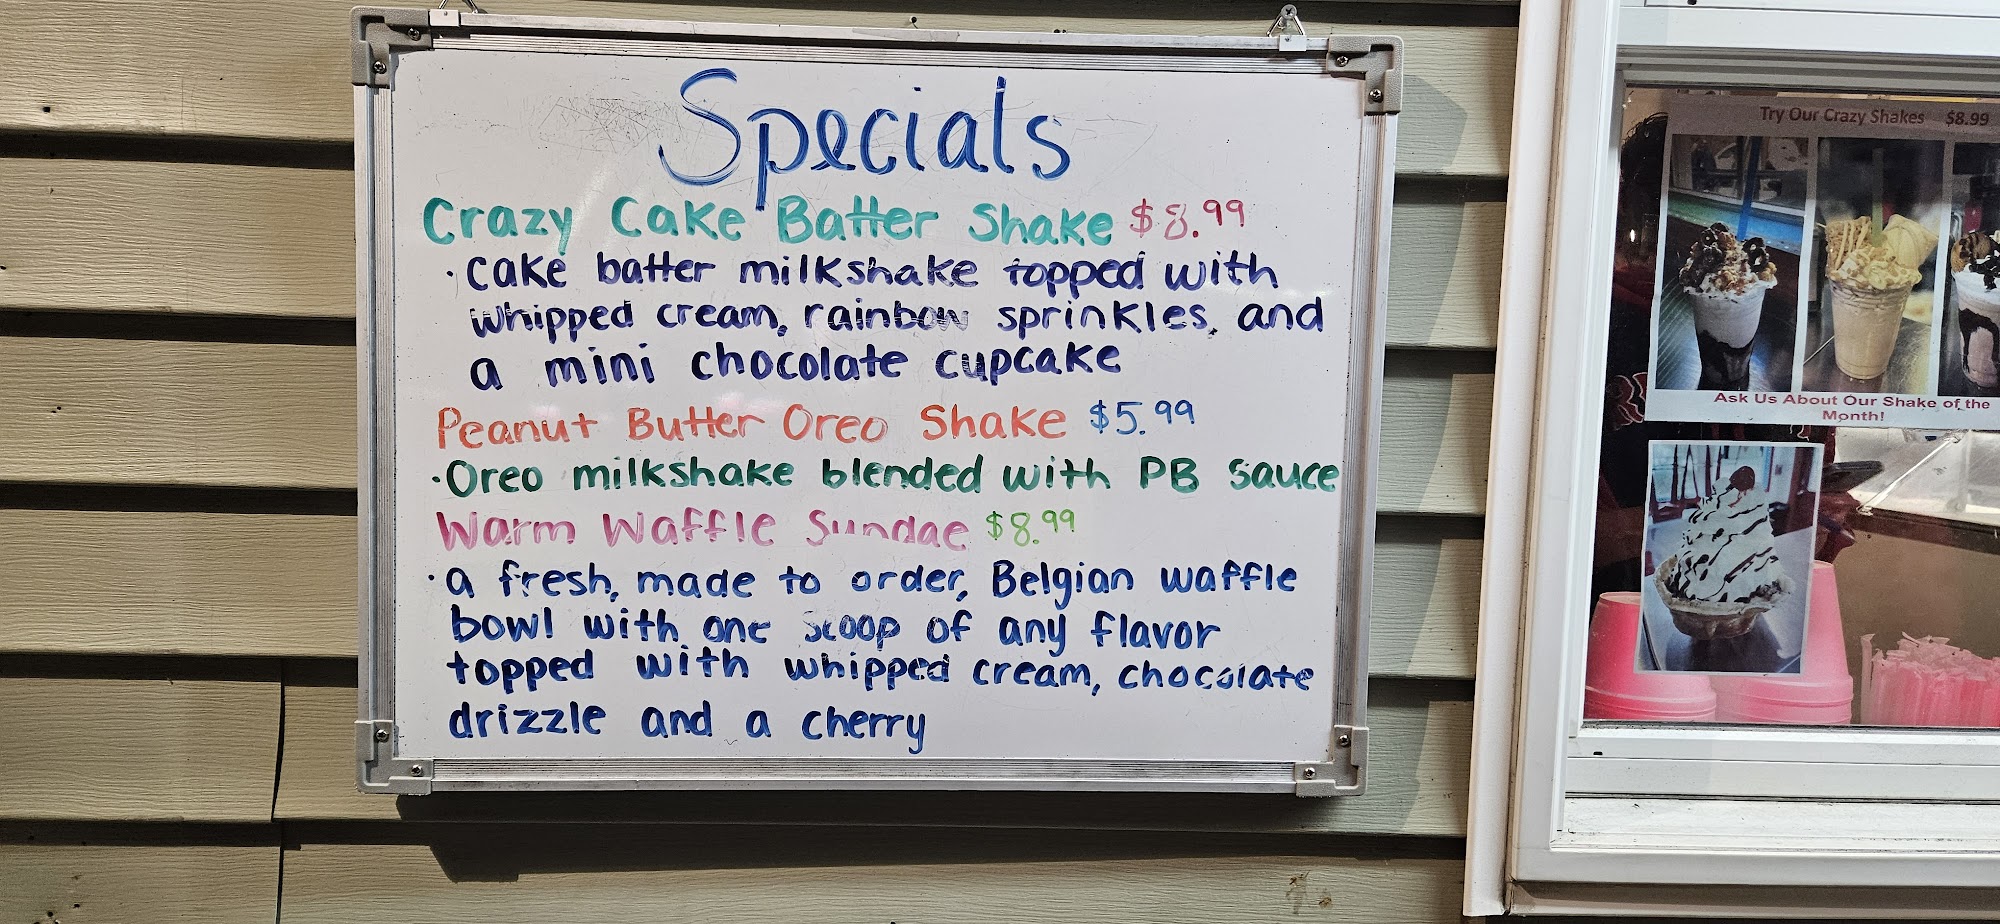 Specials
Crazy Cake Batter Shake $8.99
· cake batter milkshake topped with
whipped cream, rainbow sprinkles, and
a mini chocolate cupcake
Peanut Butter Oreo Shake $5.99
· Oreo milkshake blended with PB sauce
Warm Waffle Sundae $8.99
· a fresh, made to order, Belgian waffle
bowl with one scoop of any flavor
topped with whipped cream, chocolate
drizzle and a cherry
Try Our Crazy Shakes $8.99
Ask Us About Our Shake of the
Month!